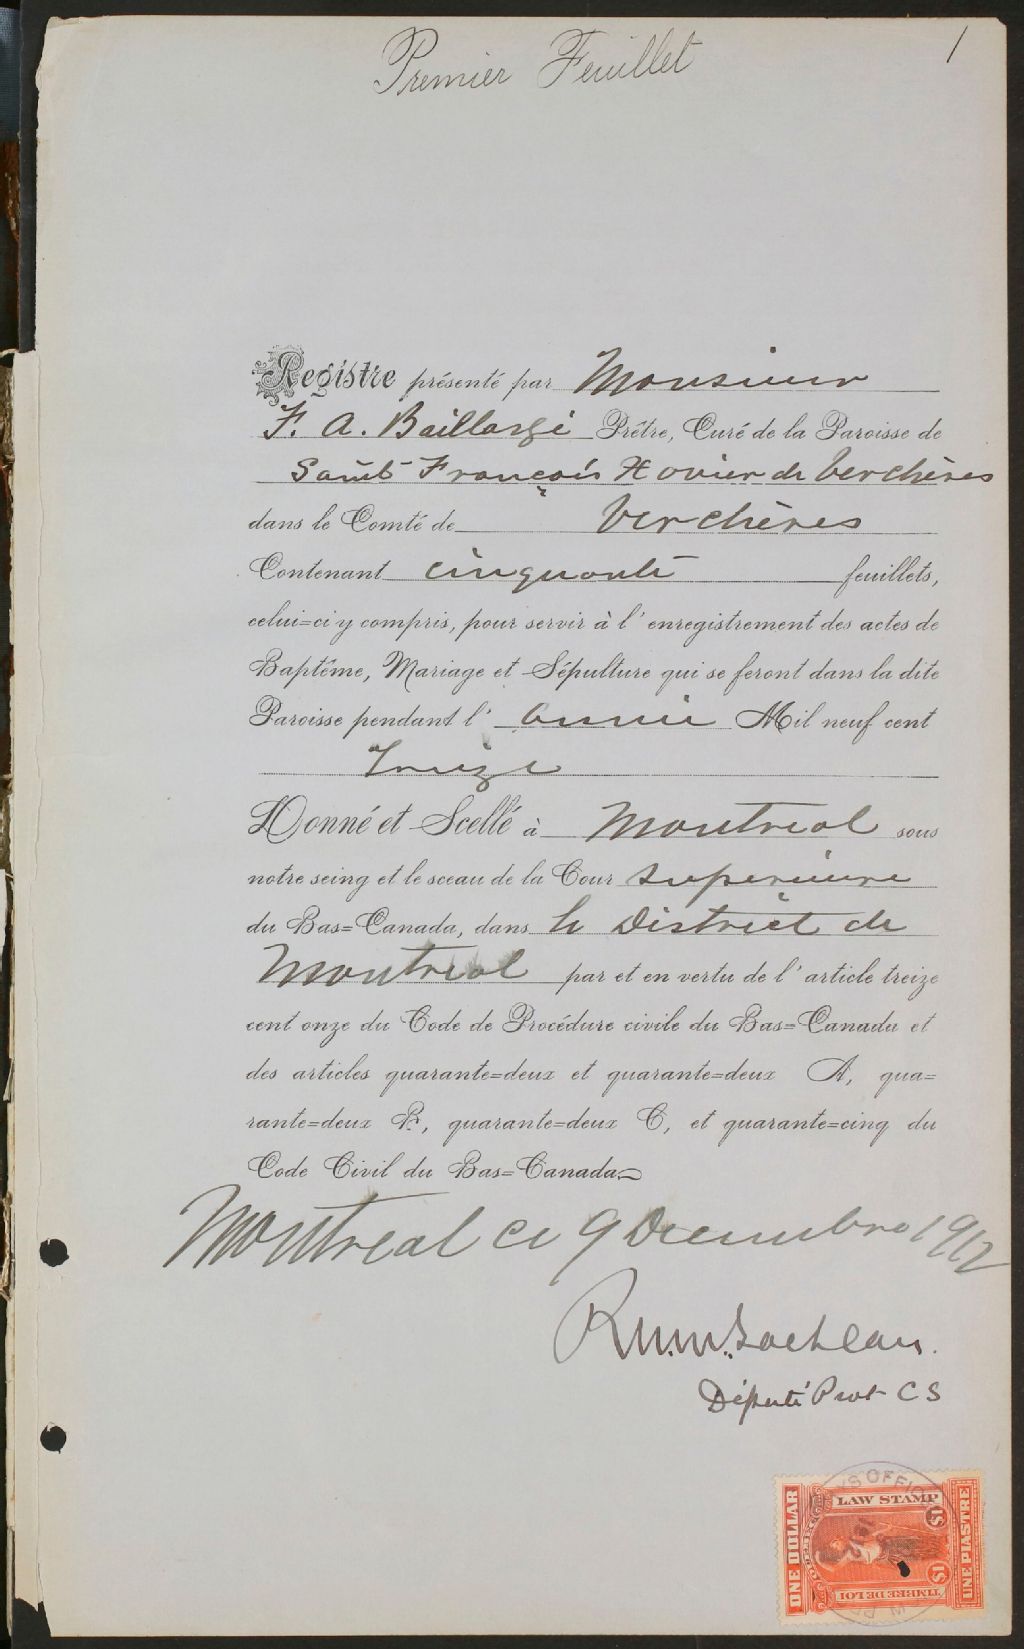 Premier Feuillet
1
Registre présenté par Monsieur
F. A. Baillargé Prêtre, Curé de la Paroisse de
Saint François Xavier de Verchères
dans le Comté de Verchères
Contenant cinquante feuillets,
celui=ci y compris, pour servir à l'enregistrement des actes de
Baptême, Mariage et Sépulture qui se feront dans la dite
Paroisse pendant l'année Mil neuf cent
Treize
Donné et Scellé à Montreal sous
notre seing et le sceau de la Cour Superieure
du Bas=Canada, dans le District de
Montreal par et en vertu de l'article treize
cent onze du Code de Procédure civile du Bas=Canada et
des articles quarante=deux et quarante=deux A, qua=
rante=deux B, quarante=deux C, et quarante=cinq du
Code Civil du Bas=Canada
Montreal ce 9 Decembre 1912
Député Prot C S
LAW STAMP
ONE DOLLAR
$1
UNE PIASTRE
TIMBRE DE LOI
$1